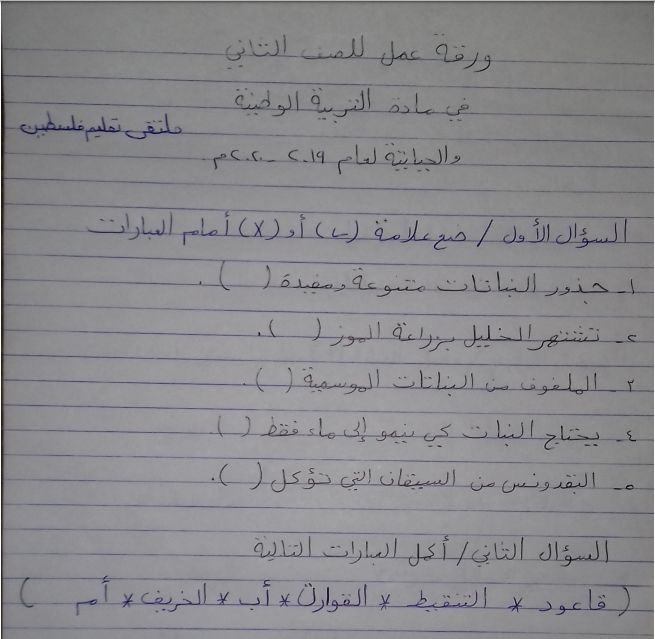 ورقة عمل للصف الثاني
في مادة التربية الوطنية
ملتقى تعليم فلسطين
والحياتية لعام ٢٠١٩ - ٢٠٢٠م
السؤال الأول / ضع علامة (✓) أو (X) أمام العبارات
١- جذور النباتات متنوعة ومفيدة ( ) .
٢- تشتهر الخليل بزراعة الموز ( ) .
٣- الملفوف من النباتات الموسمية ( ) .
٤- يحتاج النبات كي ينمو إلى ماء فقط ( ) .
٥- البقدونس من السيقان التي تؤكل ( ) .
السؤال الثاني / أكمل العبارات التالية
( قاعود * التنقيط * القوارض * أب * الخريف * أم )